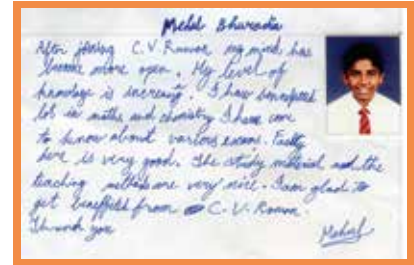 Mehul Bhuradia
After joining C.V. Raman my mind has
become more open. My level of
knowledge is increasing. I have benefited
lot in maths and chemistry I have come
to know about various exams. Faculty
here is very good. The study material and the
teaching methods are very nice. I am glad to
get benefited from C.V. Raman.
Thank you
Mehul